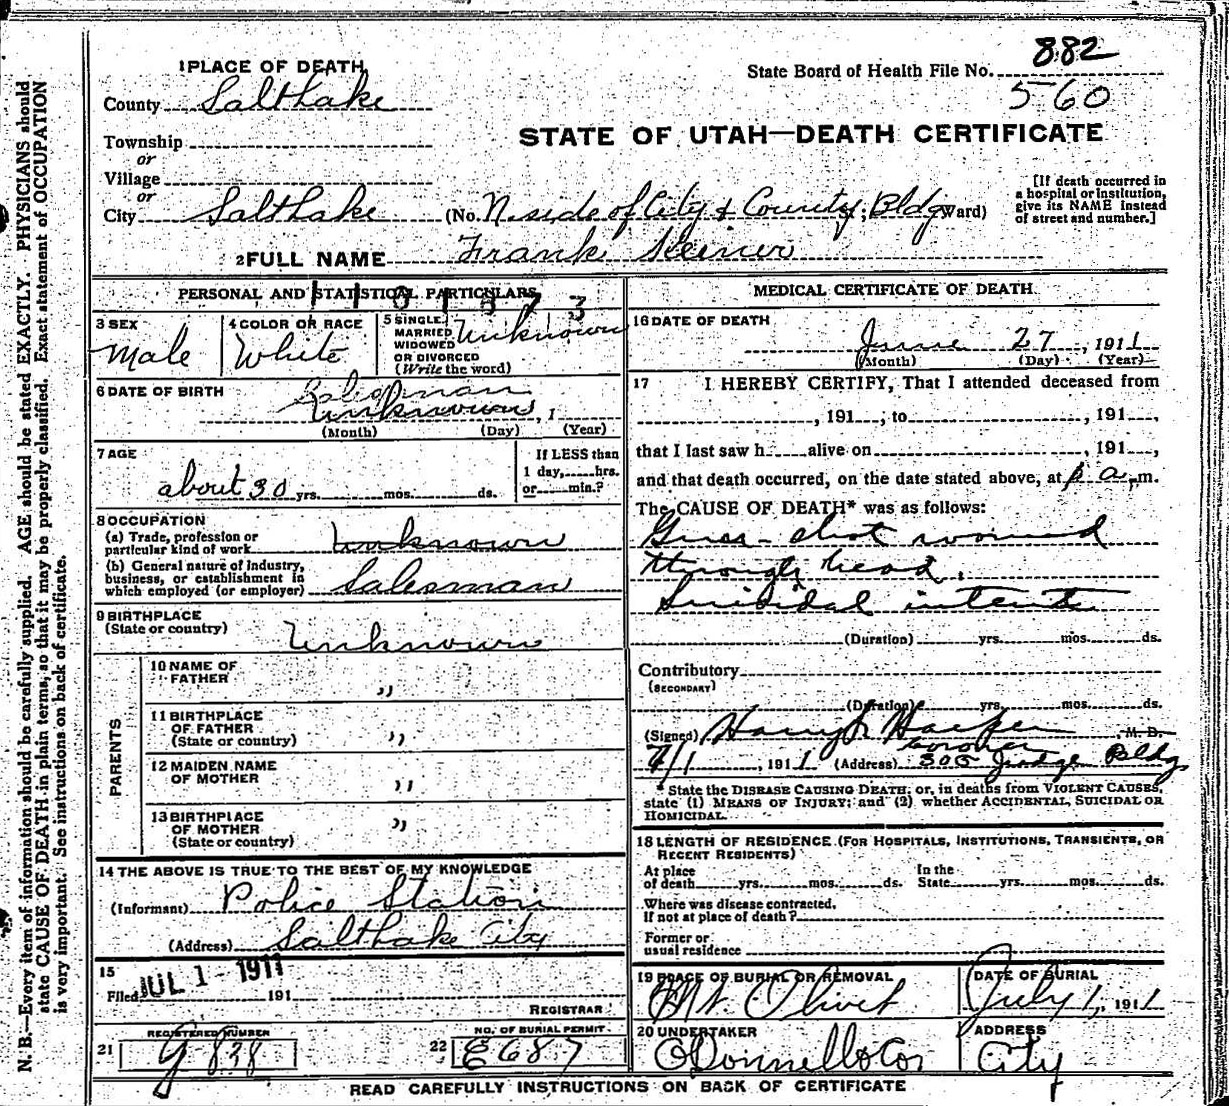 882
State Board of Health File No.
560
1 PLACE OF DEATH
County Salt Lake
STATE OF UTAH—DEATH CERTIFICATE
Township
or
Village
or
City Salt Lake (No. N. side of City & County; Bldg Ward)
[If death occurred in a hospital or institution, give its NAME instead of street and number.]
2 FULL NAME Frank Steiner
PERSONAL AND STATISTICAL PARTICULARS
3 SEX
Male
4 COLOR OR RACE
White
5 SINGLE, MARRIED WIDOWED OR DIVORCED (Write the word)
Unknown
6 DATE OF BIRTH
Salesman
Unknown, 1
(Month) (Day) (Year)
7 AGE
about 30 yrs. mos. ds.
If LESS than 1 day, hrs. or min.?
8 OCCUPATION
(a) Trade, profession or particular kind of work Unknown
(b) General nature of industry, business, or establishment in which employed (or employer) Salesman
9 BIRTHPLACE
(State or country) Unknown
PARENTS
10 NAME OF FATHER ,,
11 BIRTHPLACE OF FATHER (State or country) ,,
12 MAIDEN NAME OF MOTHER ,,
13 BIRTHPLACE OF MOTHER (State or country) ,,
14 THE ABOVE IS TRUE TO THE BEST OF MY KNOWLEDGE
(Informant) Police Station
(Address) Salt Lake City
15
Filed JUL 1 - 1911 191
REGISTRAR
REGISTERED NUMBER
21 G 838
NO. OF BURIAL PERMIT
22 E 687
MEDICAL CERTIFICATE OF DEATH
16 DATE OF DEATH
June 27, 1911
(Month) (Day) (Year)
17 I HEREBY CERTIFY, That I attended deceased from
, 191 ; to , 191 ,
that I last saw h alive on , 191 ,
and that death occurred, on the date stated above, at a. m.
The CAUSE OF DEATH* was as follows:
Gun-shot wound
through head.
Suicidal intent
(Duration) yrs. mos. ds.
Contributory
(SECONDARY)
(Duration) yrs. mos. ds.
(Signed) Harry , M. D.
Coroner
7/1, 1911 (Address) 306 Judge Bldg
* State the DISEASE CAUSING DEATH; or, in deaths from VIOLENT CAUSES,
state (1) MEANS OF INJURY; and (2) whether ACCIDENTAL, SUICIDAL OR
HOMICIDAL.
18 LENGTH OF RESIDENCE (FOR HOSPITALS, INSTITUTIONS, TRANSIENTS, OR
RECENT RESIDENTS)
At place of death yrs. mos. ds. In the State yrs. mos. ds.
Where was disease contracted,
If not at place of death?
Former or
usual residence
19 PLACE OF BURIAL OR REMOVAL
Mt. Olivet
DATE OF BURIAL
July 1, 1911
20 UNDERTAKER
O'Donnell & Co.
ADDRESS
City
READ CAREFULLY INSTRUCTIONS ON BACK OF CERTIFICATE
N. B.—Every item of information should be carefully supplied. AGE should be stated EXACTLY. PHYSICIANS should
state CAUSE OF DEATH in plain terms, so that it may be properly classified. Exact statement of OCCUPATION
is very important. See instructions on back of certificate.